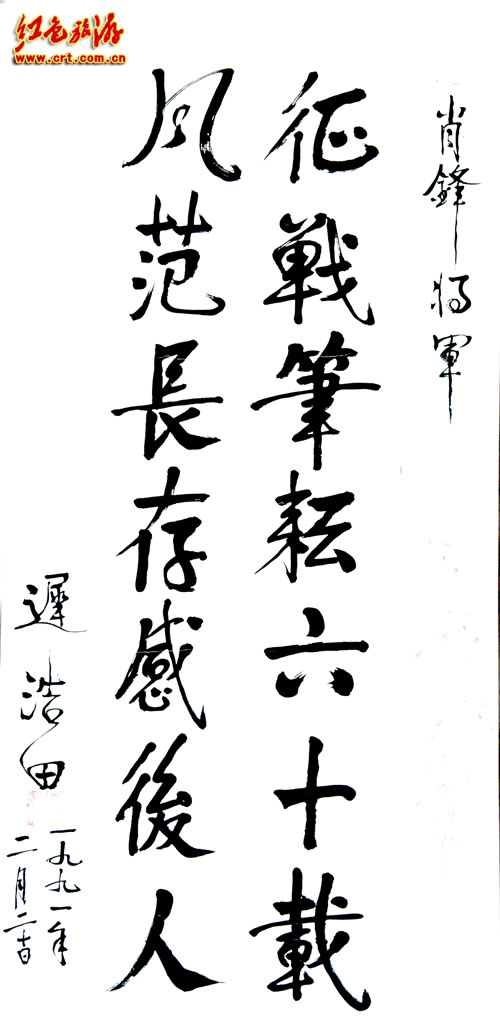 红色旅游
www.crt.com.cn
肖鋒将軍
征戦筆耘六十載
风范長存感後人
遲浩田
一九九一年
二月二十日